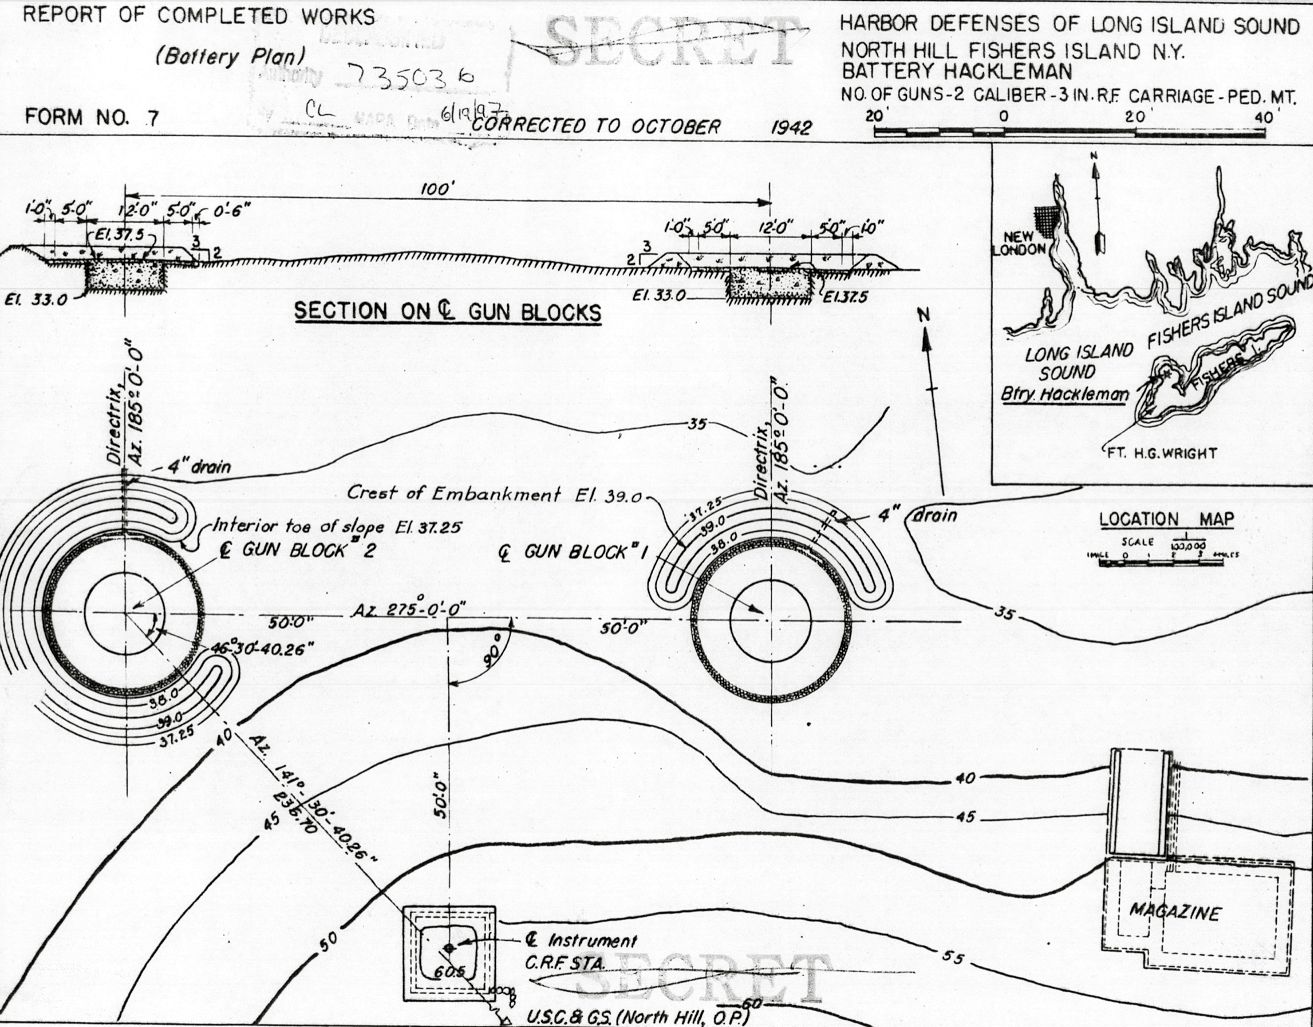 REPORT OF COMPLETED WORKS
(Battery Plan)
FORM NO. 7
735036
CL
6/19/97
SECRET
CORRECTED TO OCTOBER 1942
HARBOR DEFENSES OF LONG ISLAND SOUND
NORTH HILL FISHERS ISLAND N.Y.
BATTERY HACKLEMAN
NO. OF GUNS-2 CALIBER-3 IN. R.F. CARRIAGE-PED. MT.
20 0 20' 40'
100'
1'-0" 5'-0" 12'-0" 5'-0" 0'-6"
El. 37.5
3
2
El. 33.0
1'-0" 5'-0" 12'-0" 5'-0" 1'-0"
3
2
El. 33.0
El. 37.5
SECTION ON ℄ GUN BLOCKS
N
NEW
LONDON
FISHERS ISLAND SOUND
LONG ISLAND
SOUND
FISHERS I.
Btry. Hackleman
FT. H.G. WRIGHT
LOCATION MAP
SCALE
1 MILE 0 1 2 3 4 MILES
N
Directrix,
Az. 185°-0'-0"
4" drain
Interior toe of slope El. 37.25
℄ GUN BLOCK #2
Crest of Embankment El. 39.0
℄ GUN BLOCK #1
Directrix,
Az. 185°-0'-0"
37.25
39.0
38.0
4" drain
35
35
Az. 275°-0'-0"
50'-0"
50'-0"
46°-30'-40.26"
90°
38.0
39.0
37.25
40
45
Az. 141°-30'-40.26"
236.70
50'-0"
40
45
50
55
60
MAGAZINE
℄ Instrument
C.R.F. STA.
60.5
SECRET
U.S.C. & G.S. (North Hill, O.P.)